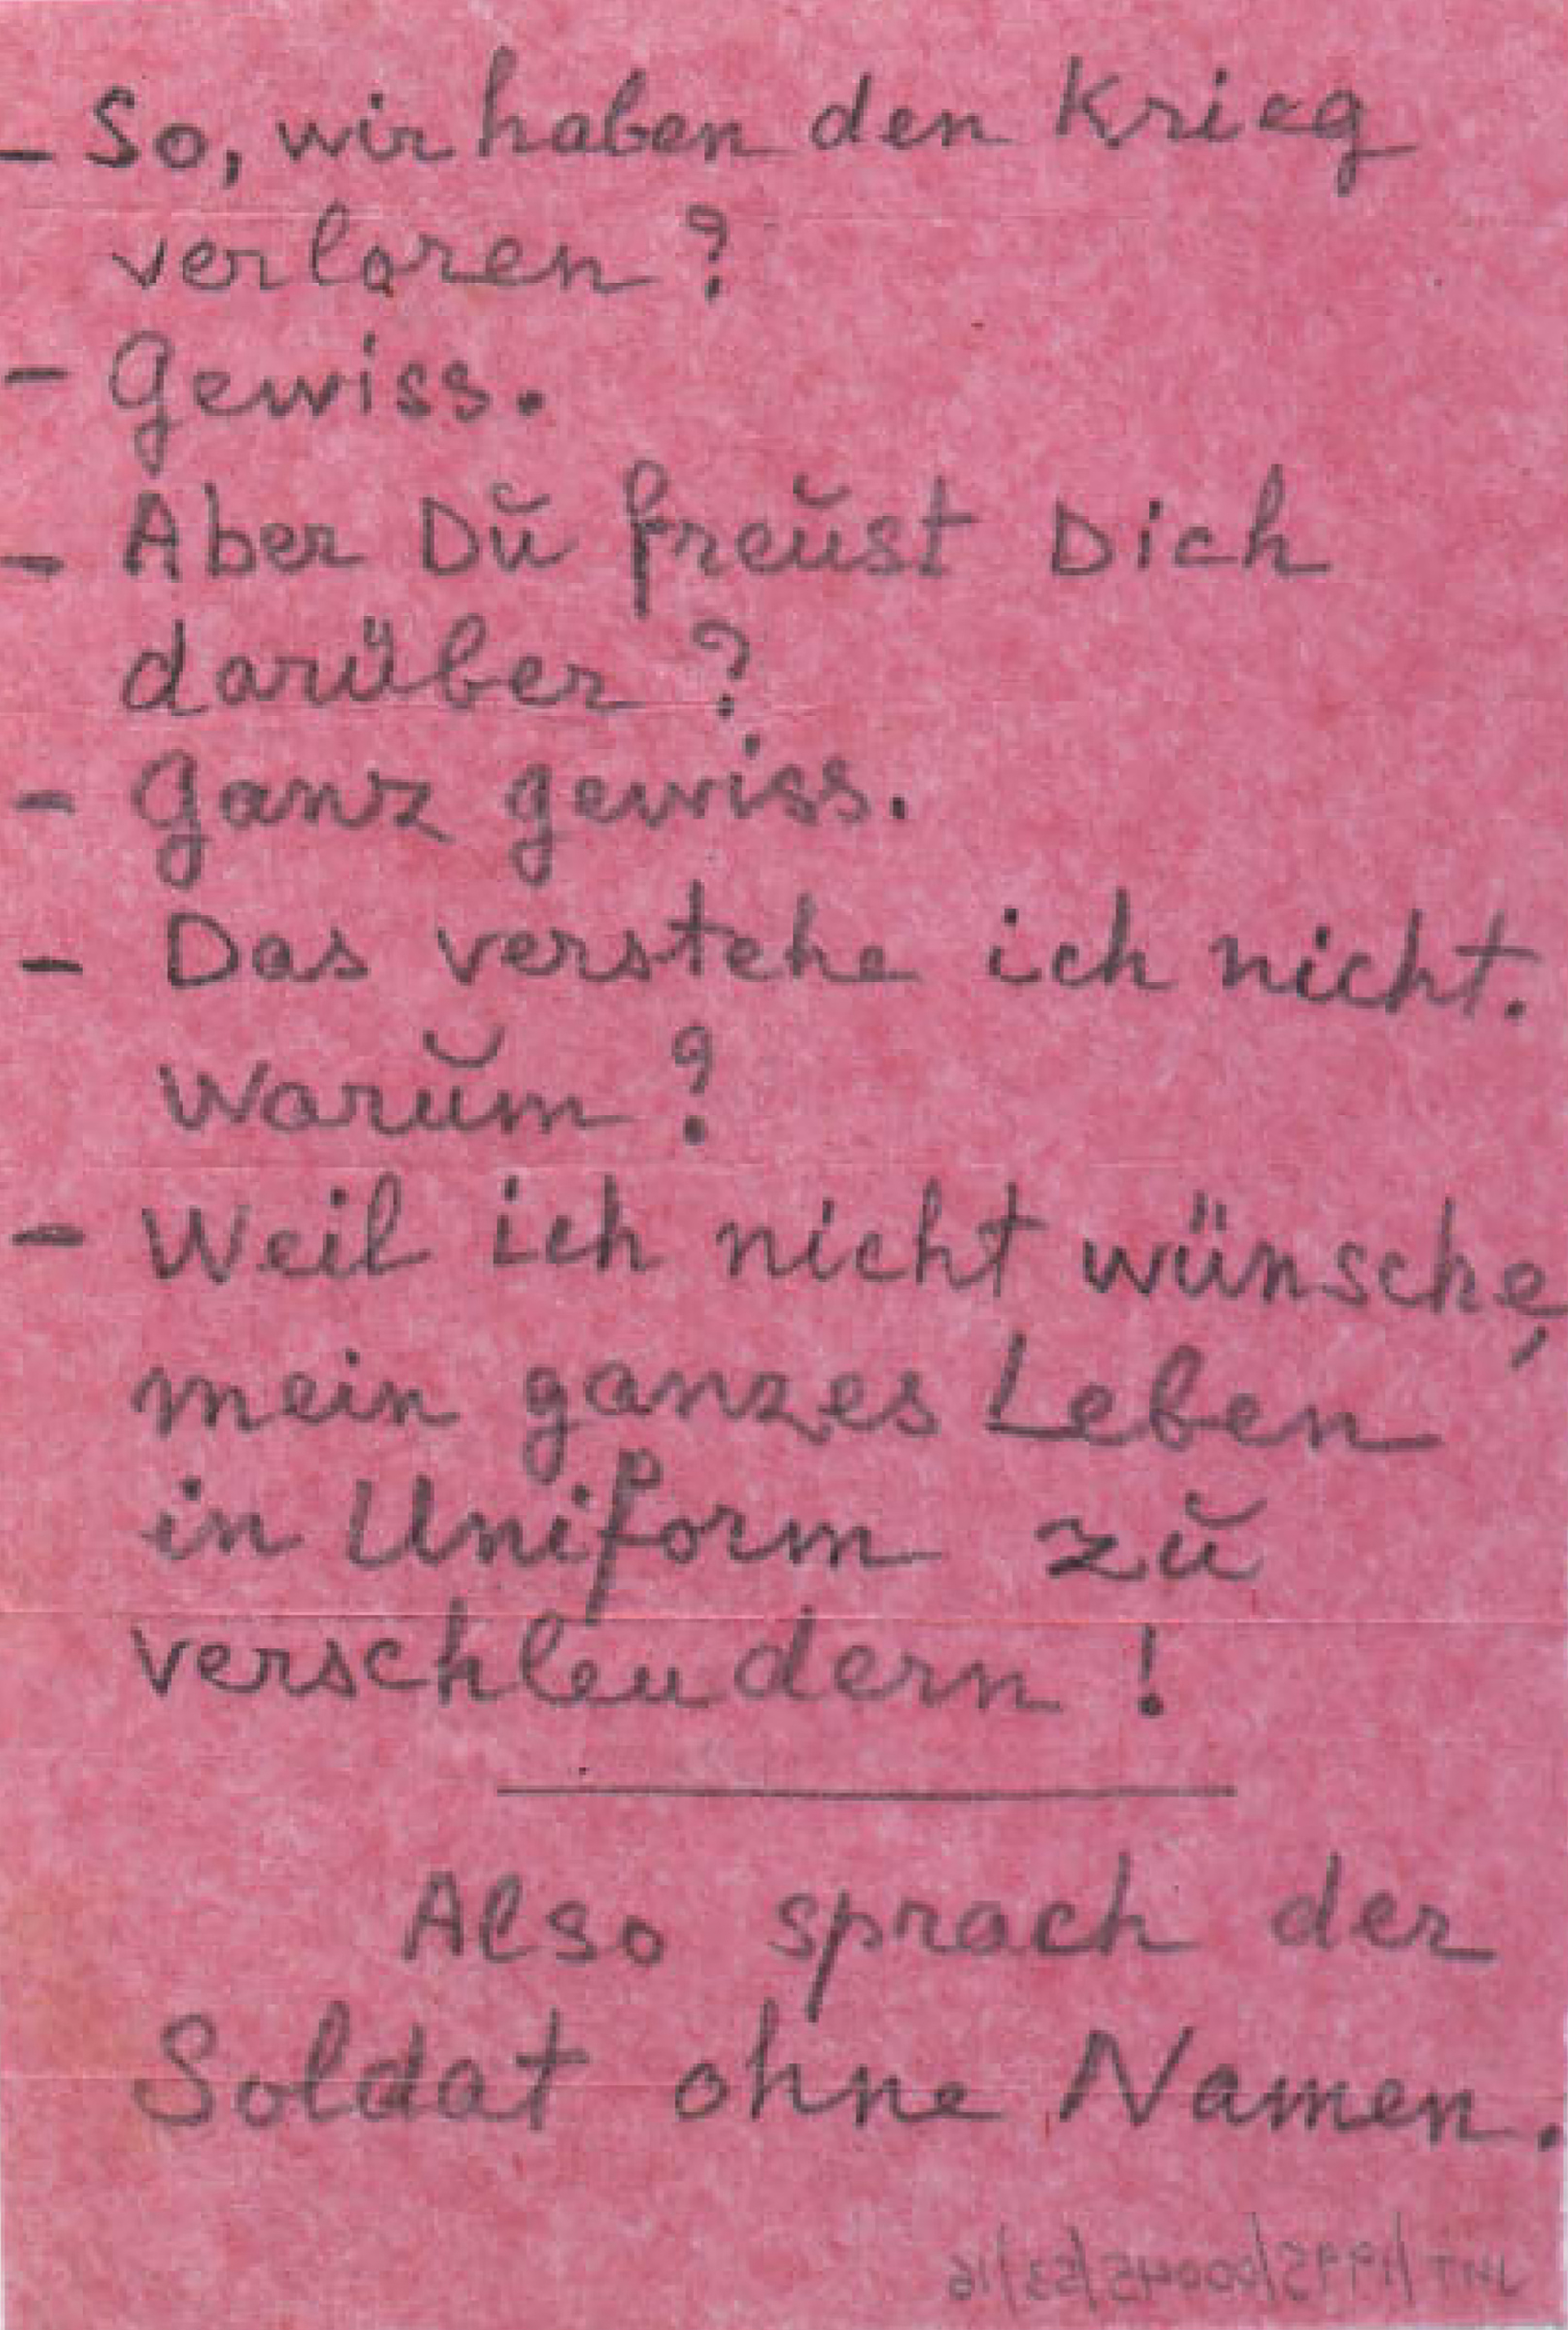 - So, wir haben den Krieg
verloren?
- Gewiss.
- Aber Dŭ freŭst Dich
darüber?
- Ganz gewiss.
- Das verstehe ich nicht.
Warŭm?
- Weil ich nicht wünsche,
mein ganzes Leben
in Uniform zŭ
verschleudern!
Also sprach der
Soldat ohne Namen.